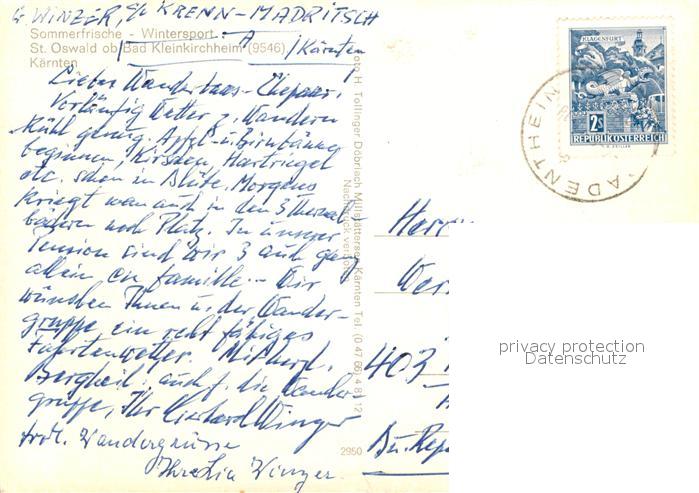 G. WINZER, c/o KRENN-MADRITSCH
Sommerfrische - Wintersport
A /Kärnten
St. Oswald ob Bad Kleinkirchheim (9546)
Kärnten
Vorläufig Wetter z. Wandern
kühl genug. Apfel- u. Birnbäume
beginnen, Kirschen, Hartriegel
etc. schon in Blüte. Morgens
kriegt man auch in den 3 Thermal-
bädern noch Platz. In unserer
Pension sind wir 3 auch ganz
allein, en famille. - Wir
wünschen Ihnen u. der Wander-
gruppe ein recht
Fahrtenwetter. Mit herzl.
Bergheil, auch f. die Wander-
gruppe, Ihr Gerhard Winzer
Wandergrüsse
Ihre Winzer
Foto H. Tollinger Döbriach Millstättersee Kärnten Tel. (0 47 66) 4 81 12
Nachdruck verboten
2950
KLAGENFURT
2S
REPUBLIK ÖSTERREICH
RADENTHEIN
Herrn
403
Bu. Rep
privacy protection
Datenschutz